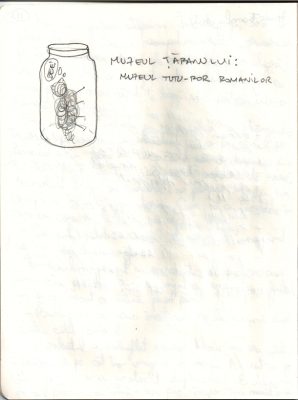 MUZEUL ȚĂRANULUI:
MUZEUL TUTU-ROR ROMANILOR